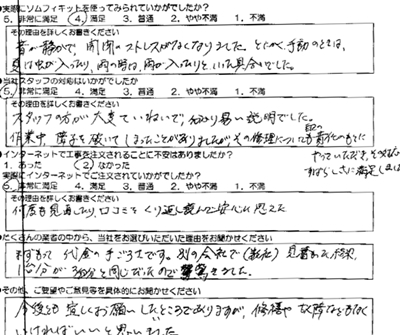 ●実際にソムフィキットを使ってみられていかがでしたか？
5．非常に満足 4．満足 3．普通 2．やや不満 1．不満
その理由を詳しくお書きください
音が静かで、開閉のストレスがなくなりました。とにかく、手動のときは、
夏は虫が入ったり、雨の時は、雨が入ったりと、いった具合いでした。
●当社スタッフの対応はいかがでしたか
5．非常に満足 4．満足 3．普通 2．やや不満 1．不満
その理由を詳しくお書きください
スタッフの方が大変ていねいで、分かり易い説明でした。
作業中、障子を破いてしまったことがありましたがその修理についても
やっていただき、その対応の
すばらしさに満足しました
●インターネットで工事を注文されることに不安はありましたか？
1．あった 2．なかった
実際にインターネットでご注文されていかがでしたか？
5．非常に満足 4．満足 3．普通 2．やや不満 1．不満
その理由を詳しくお書きください
何度も見直したり、口コミをくり返し読んで安心と思えた
●たくさんの業者の中から、当社をお選びいただいた理由をお聞かせください
まずもって代金の手ごろさです。別の会社で(数社)見積もった結果、
１台分が３台分と同じだったので驚きました。
●その他、ご要望やご意見等を具体的にお聞かせください
今後も宜しくお願いしたいところでありますが、修繕や故障などもなく
いければいいと思いました